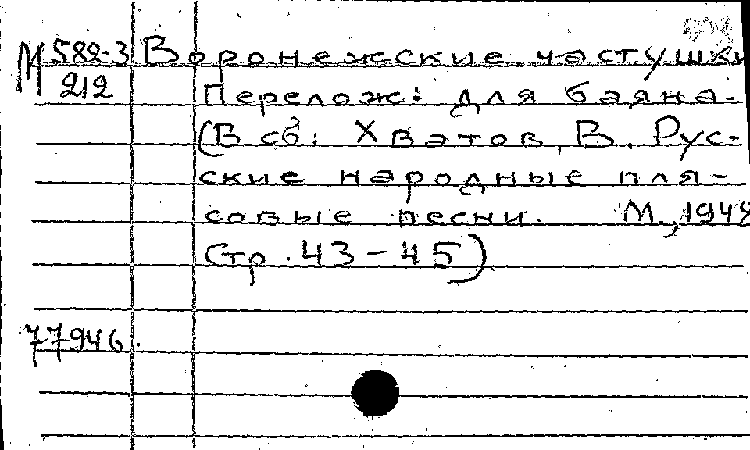 М 582-3 Воронежские частушки
212 Перелож: для баяна.
(В сб: Хватов, В. Рус-
ские народные пля-
совые песни. М., 1948
Стр. 43-45)
77946.